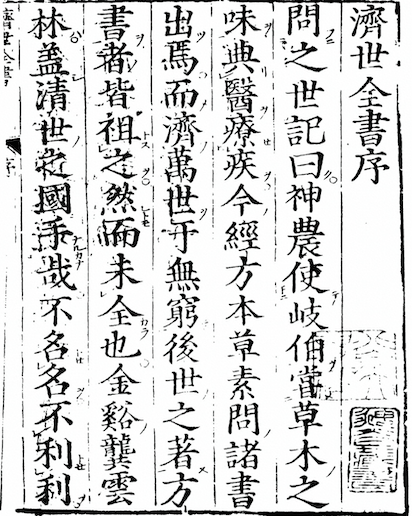 濟世全書序
問之世記曰神農使岐伯嘗草木之
味典醫療疾今經方本草素問諸書
出焉而濟萬世于無窮後世之著方
書者皆祖之然而未全也金谿龔雲
林盖清世國手哉不名名不利利
濟世全書 序